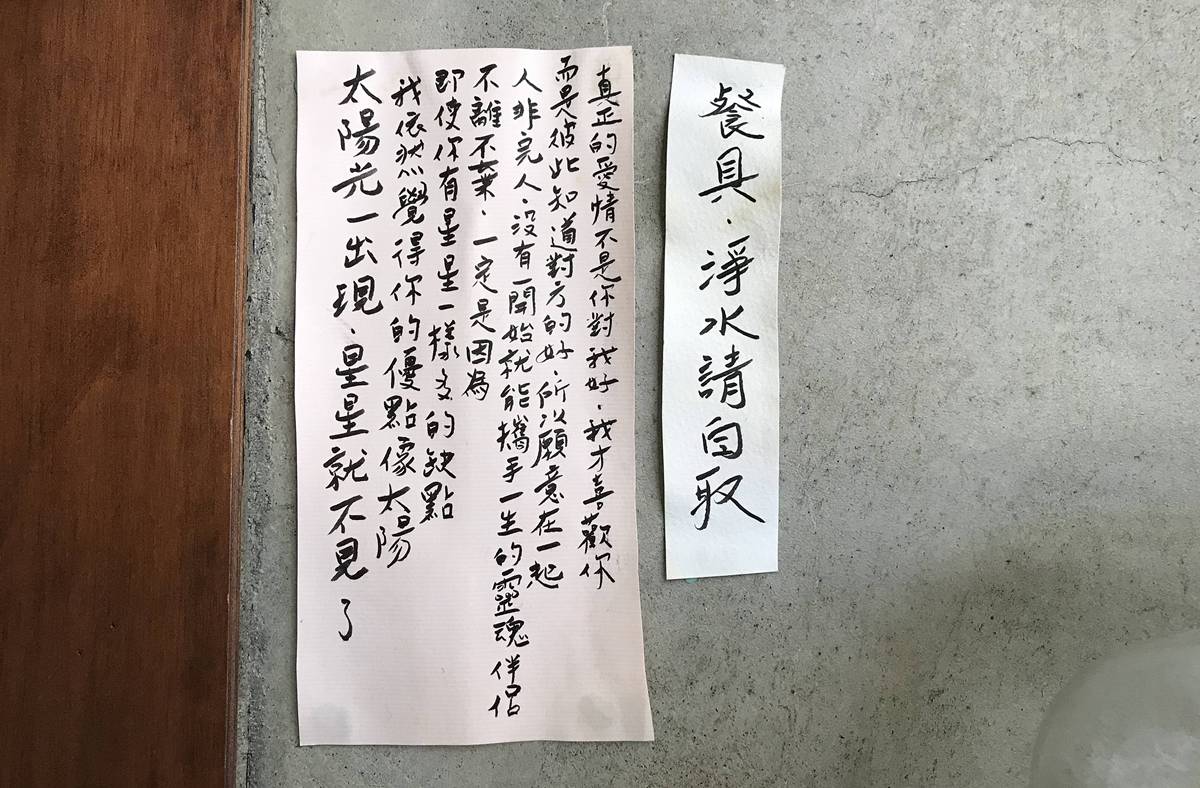 餐具．淨水請自取
真正的愛情不是你對我好．我才喜歡你
而是彼此知道對方的好．所以願意在一起
人非完人．沒有一開始就能攜手一生的靈魂伴侶
不離不棄．一定是因為
即使你有星星一樣多的缺點
我依然覺得你的優點像太陽
太陽光一出現．星星就不見了